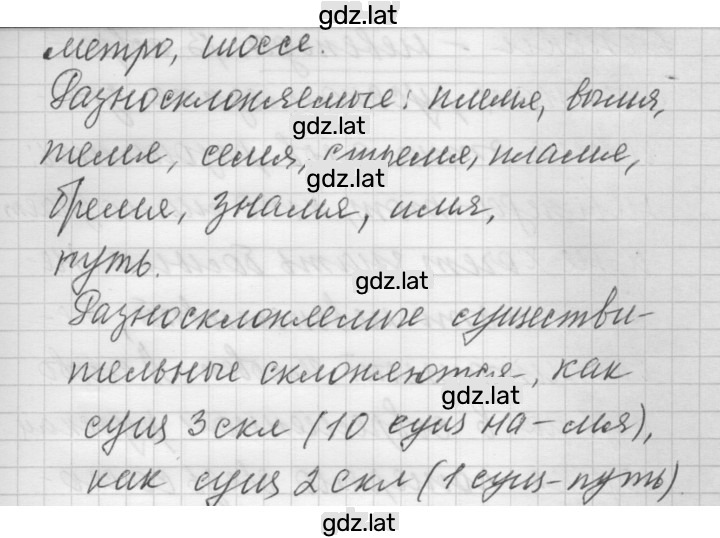 gdz.lat
метро, шоссе.
Разносклоняемые: племя, вымя,
gdz.lat
темя, семя, стремя, пламя,
gdz.lat
бремя, знамя, имя,
путь.
gdz.lat
Разносклоняемые существи-
тельные склоняются, как
gdz.lat
сущ 3 скл (10 сущ на -мя),
как сущ 2 скл (1 сущ - путь).
gdz.lat